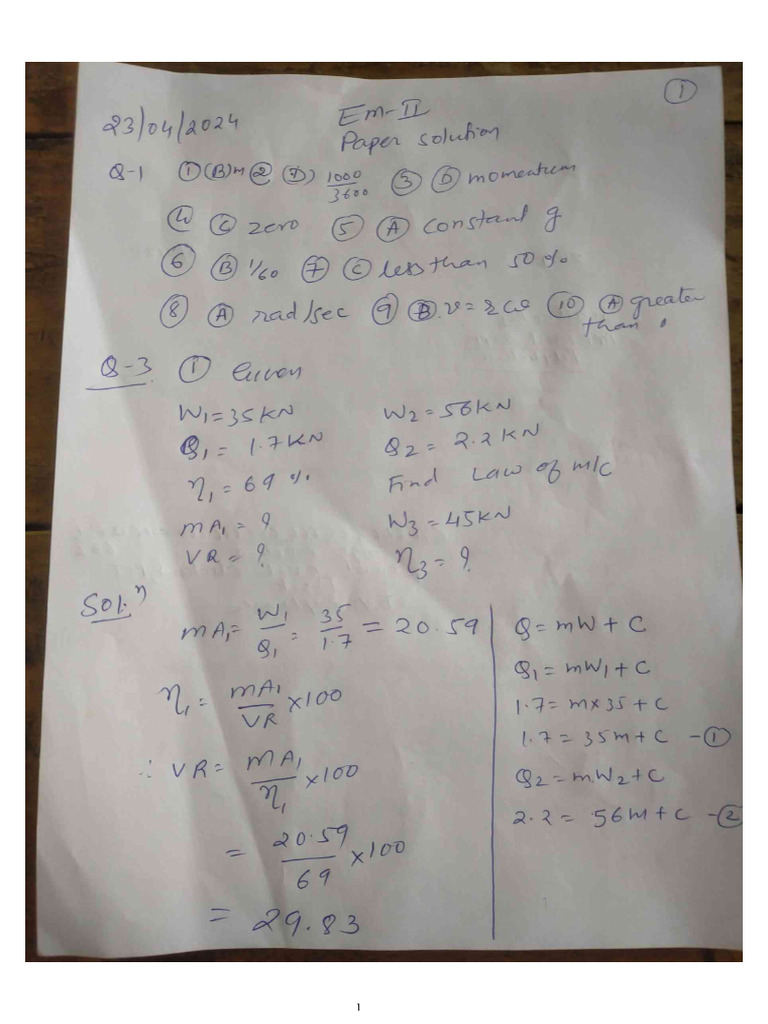 ①
23/04/2024
Em-II
Paper solution
Q-1 ① (B) m ② (D) 1000/3600 ③ Ⓓ momentum
④ Ⓒ zero ⑤ Ⓐ constant g
⑥ Ⓑ 1/60 ⑦ Ⓒ less than 50 %
⑧ Ⓐ rad/sec ⑨ Ⓑ v = rω ⑩ Ⓐ greater
than
Q-3. ① Given
W1 = 35 KN W2 = 56 KN
Q1 = 1.7 KN Q2 = 2.2 KN
η1 = 69 % Find Law of m/c
MA1 = ? W3 = 45 KN
VR = ? η3 = ?
Sol.n
MA1 = W1/Q1 = 35/1.7 = 20.59
η1 = MA1/VR × 100
∴ VR = MA1/η1 × 100
= 20.59/69 × 100
= 29.83
Q = mW + C
Q1 = mW1 + C
1.7 = m × 35 + C
1.7 = 35m + C - ①
Q2 = mW2 + C
2.2 = 56m + C - ②
1